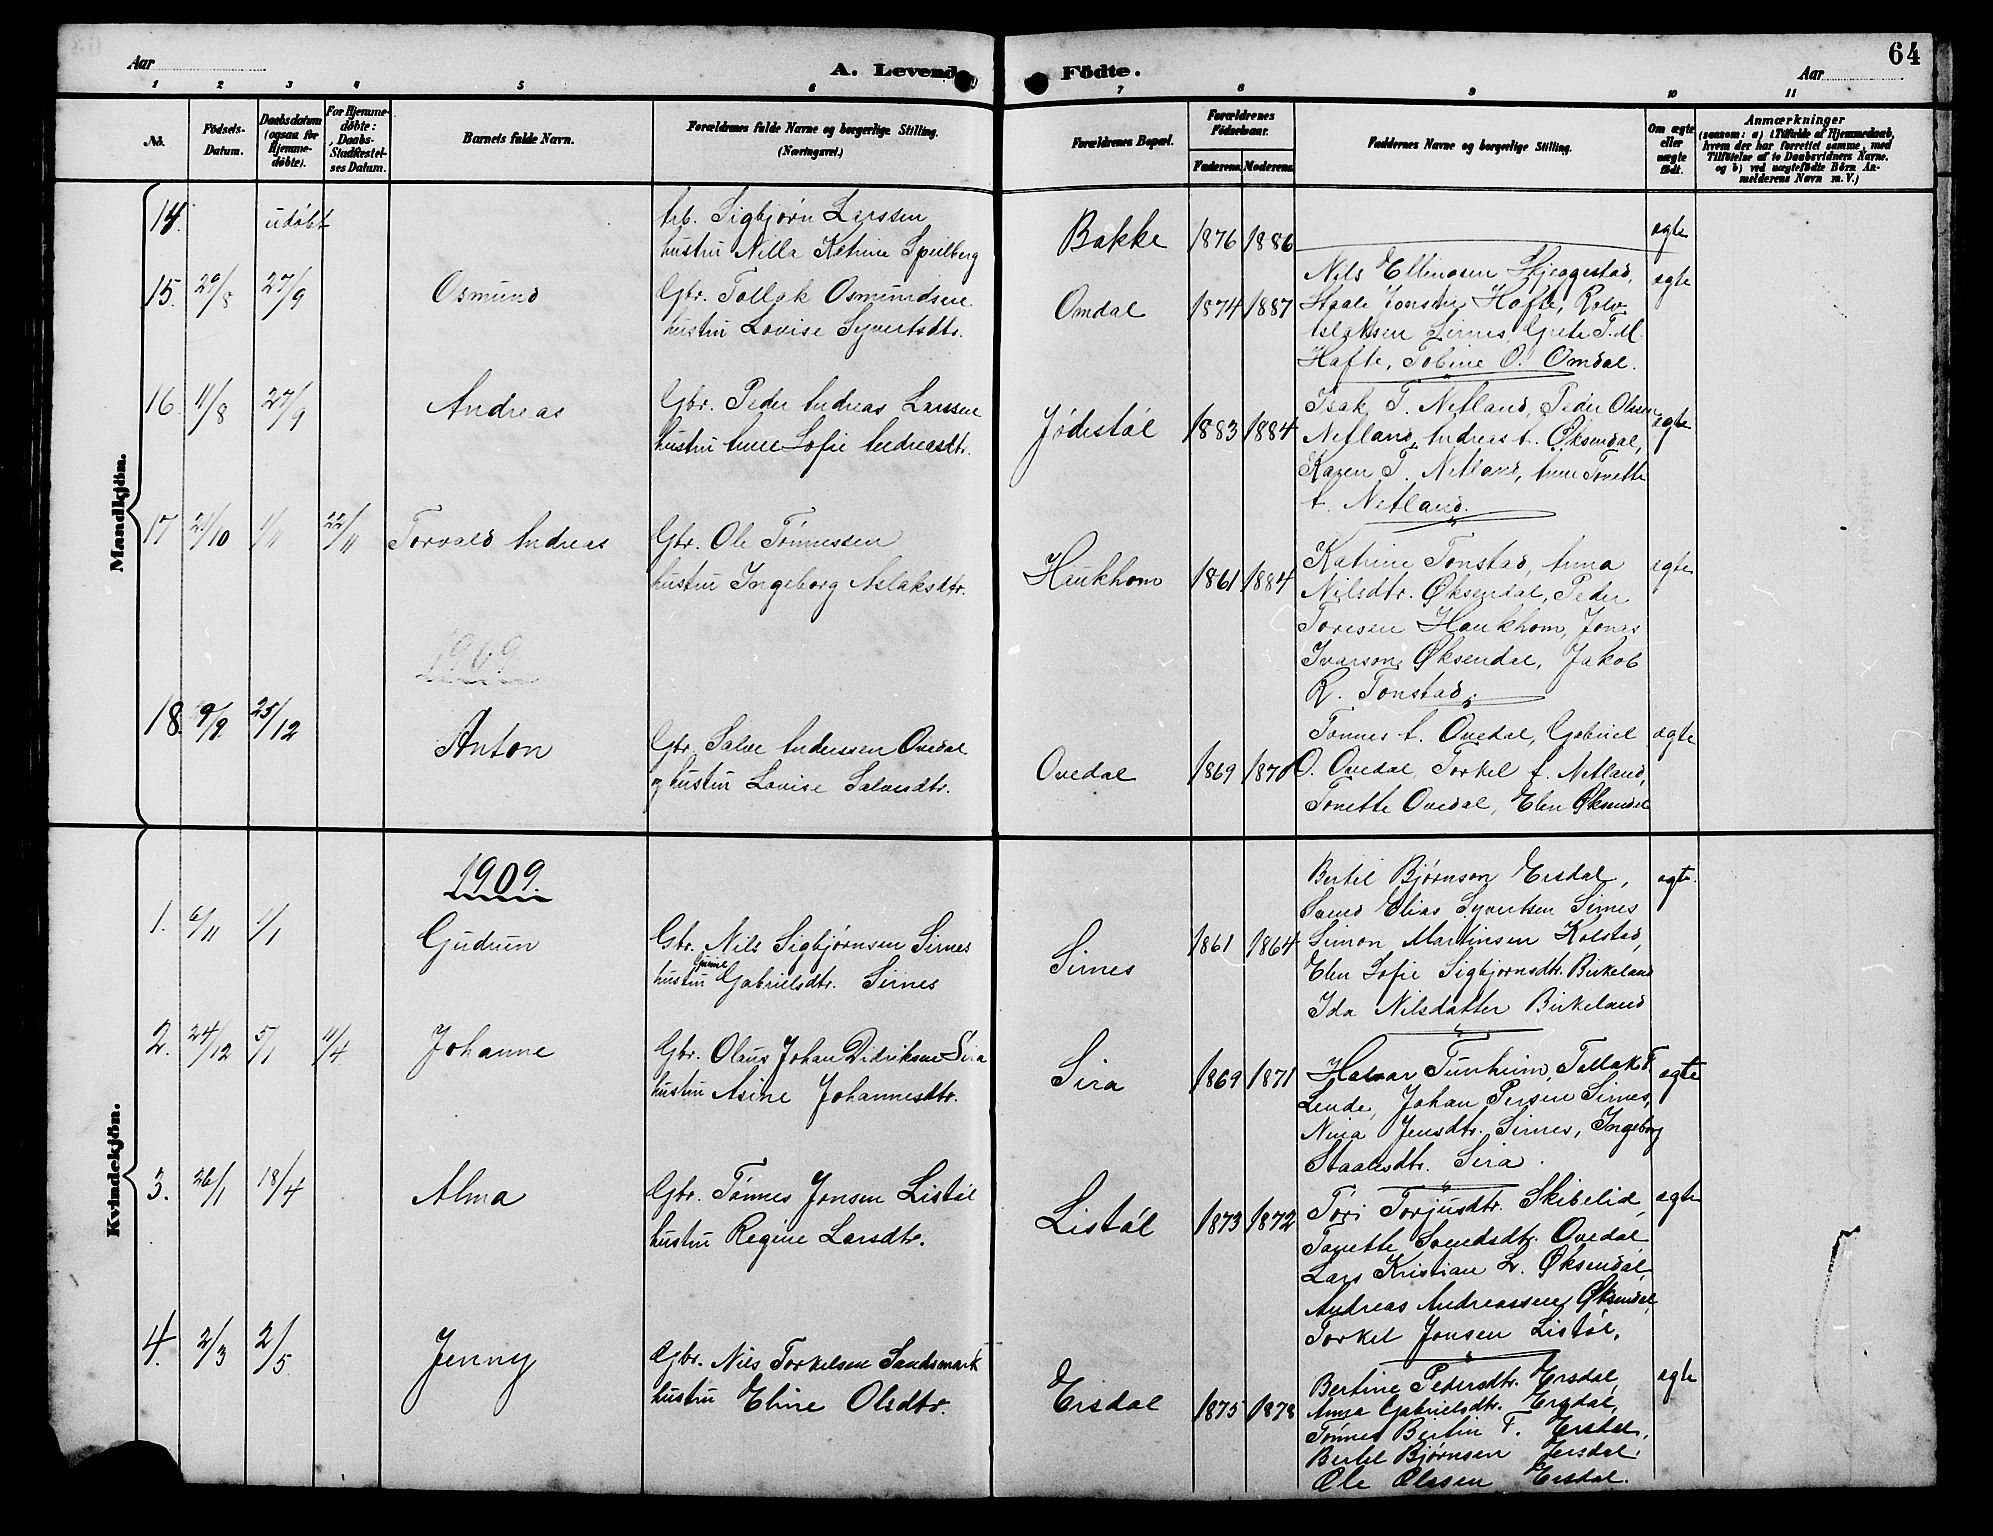 64
Aar
A. Levende
Födte.
Aar
1 2 3 4 5 6 7 8 9 10 11
No.
Födsels-
Datum.
Daabsdatum
(ogsaa for
Hjemme-
döbte).
For Hjemme-
döbte:
Daabs-
Stadfæstel-
ses Datum.
Barnets fulde Navn.
Forældrenes fulde Navne og borgerlige Stilling.
(Næringsvei.)
Forældrenes Bopæl.
Forældrenes
Födselsaar.
Faderens. Moderens.
Faddernes Navne og borgerlige Stilling.
Om ægte
eller
uægte
födt.
Anmærkninger
(saasom: a) i Tilfælde af Hjemmedaab,
hvem der har forrettet samme, med
Tilföielse af to Daabsvidners Navne.
og b) ved uægtefödte Börn An-
melderens Navn m. V.)
Mandkjön.
14. udøbt
Arb. Sigbjørn Larssen
hustru Nilla Katrine Speilberg
Bakke 1876 1886
ægte
15. 29/8 27/9 Osmund
Gbr. Tollak Osmundsen
hustru Lovise Syvertsdtr.
Omdal 1874 1887
Nils Ellingsen Skjeggestad,
Staale Jonsen Hafte, Rolv
Aslaksen Sirnes, Grete T. M.
Hafte, Tobine O. Omdal.
ægte
16. 11/8 27/9 Andreas
Gbr. Peder Andreas Larssen
hustru Anne Sofie Andreasdtr.
Jødestøl 1883 1884
Isak T. Netland, Peder Olsen
Netland, Andreas A. Øksendal,
Karen T. Netland, Anne Tonette
A. Netland.
ægte
17 21/10 1/11 22/11 Torvald Andreas
Gbr. Ole Tønnessen
hustru Ingeborg Aslaksdtr.
Haukhom 1861 1884
Katrine Tonstad, Anna
Nilsdtr. Øksendal, Peder
Toresen Haukhom, Jonas
Ivarson Øksendal, Jakob
R. Tonstad.
ægte
1909
18. 9/9 25/12 Anton
Gbr. Salve Anderssen Ovedal
og hustru Lovise Salvesdtr.
Ovedal 1869 1870
Tønnes A. Ovedal, Gabriel
O. Ovedal, Torkel A. Netland,
Tonette Ovedal, Elen Øksendal
ægte
Kvindekjön.
1909.
1. 6/11 1/1 Gudrun
Gbr. Nils Sigbjørnsen Sirnes
hustru Gunne Gabrielsdtr. Sirnes
Sirnes 1861 1864
Bertil Bjørnson Ersdal,
Svend Elias Syvertsen Sirnes
Simon Martinsen Kolstad,
Elen Sofie Sigbjørnsdtr. Birkeland
Ida Nilsdatter Birkeland
ægte.
2. 24/12 5/1 11/4 Johanne
Gbr. Olaus Johan Didriksen Sira
hustru Asine Johannesdtr.
Sira 1869 1871
Halvar Tunheim, Tollak T.
Lende, Johan Persen Sirnes,
Nina Jensdtr. Sirnes, Ingeborg
Staalesdtr. Sira.
ægte
3. 26/1 18/4 Alma
Gbr. Tønnes Jonsen Listøl
hustru Regine Larsdtr.
Listøl 1873 1872
Tori Torjusdtr. Skibelid,
Tonette Svendsdtr. Ovedal,
Lars Kristian L. Øksendal,
Andreas Andreassen Øksendal,
Torkel Jonsen Listøl.
ægte
4. 2/3 2/5 Jenny
Gbr. Nils Torkelsen Sandsmark
hustru Eline Olsdtr.
Ersdal 1875 1878
Bertine Pedersdtr. Ersdal,
Anna Gabrielsdtr. Ersdal,
Tønnes Bertin T. Ersdal,
Bertel Bjørnsen Ersdal.
Ole Olssen Ersdal.
ægte